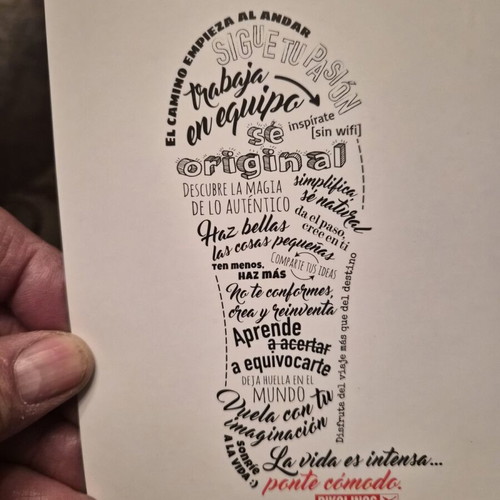 EL CAMINO EMPIEZA AL ANDAR
SIGUE TU PASIÓN
trabaja
en equipo
inspírate
[sin wifi]
sé
original
DESCUBRE LA MAGIA
DE LO AUTÉNTICO
simplifica
sé natural
da el paso,
cree en ti
Haz bellas
las cosas pequeñas
TEN MENOS,
HAZ MÁS
COMPARTE TUS IDEAS
No te conformes,
crea y reinventa
Aprende
a acertar
a equivocarte
DEJA HUELLA EN EL
MUNDO
Vuela con tu
imaginación
Disfruta del viaje más que del destino
SONRÍE
A LA VIDA :)
La vida es intensa...
ponte cómodo.
PIKOLINOS